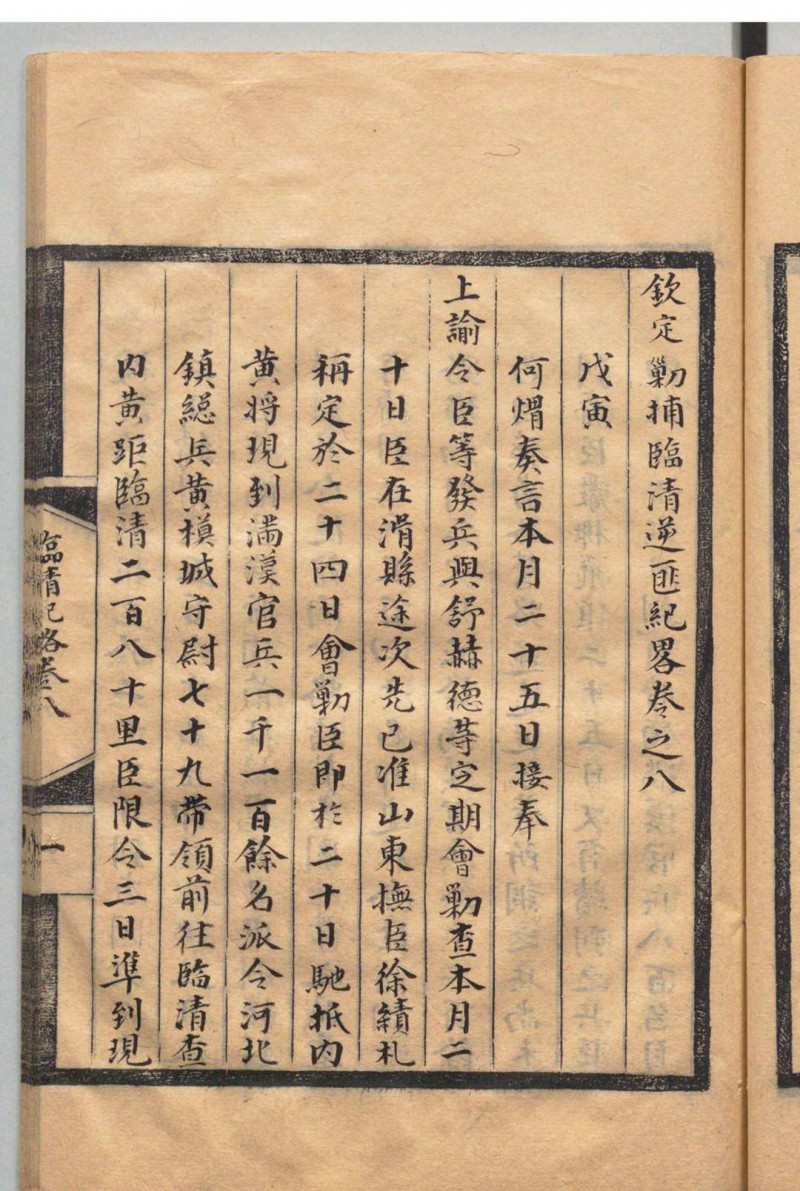 欽定勦捕臨清逆匪紀畧卷之八
戊寅
何煟奏言本月二十五日接奉
上諭令臣等發兵與舒赫德等定期會勦查本月二
十日臣在滑縣途次先已准山東撫臣徐績札
稱定於二十四日會勦臣即於二十日馳抵内
黄將現到滿漢官兵一千一百餘名派令河北
鎮総兵黄模城守尉七十九帶領前往臨清查
内黄距臨清二百八十里臣限令三日準到現
臨清紀略卷八
一